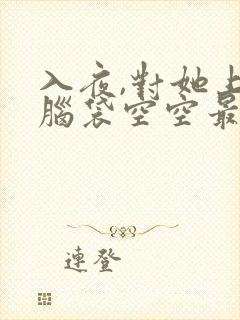 入夜,對她上
腦袋空空最
連登